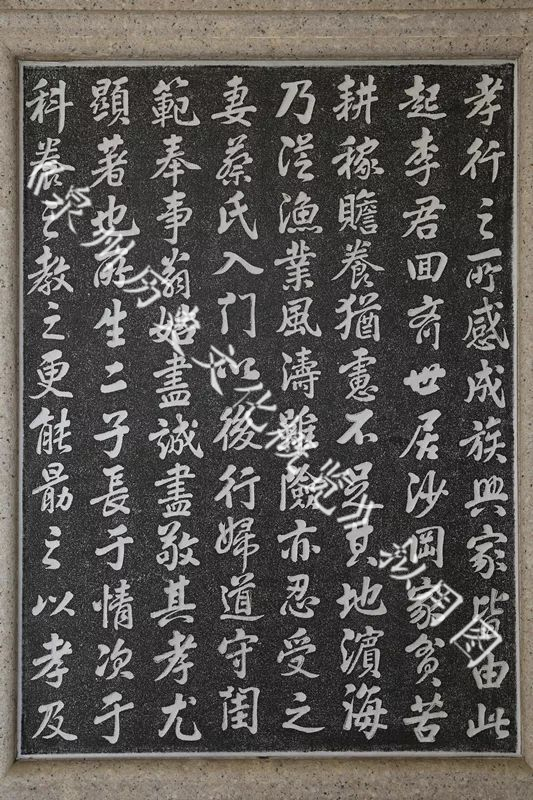 孝行之所感成族興家皆由此
起李君回齊世居沙岡家貧苦
耕稼贍養猶慮不足其地濱海
乃從漁業風濤雖險亦忍受之
妻蔡氏入门以後行婦道守閨
範奉事翁姑盡誠盡敬其孝尤
顯著也所生二子長于情次于
科養之教之更能勗之以孝及